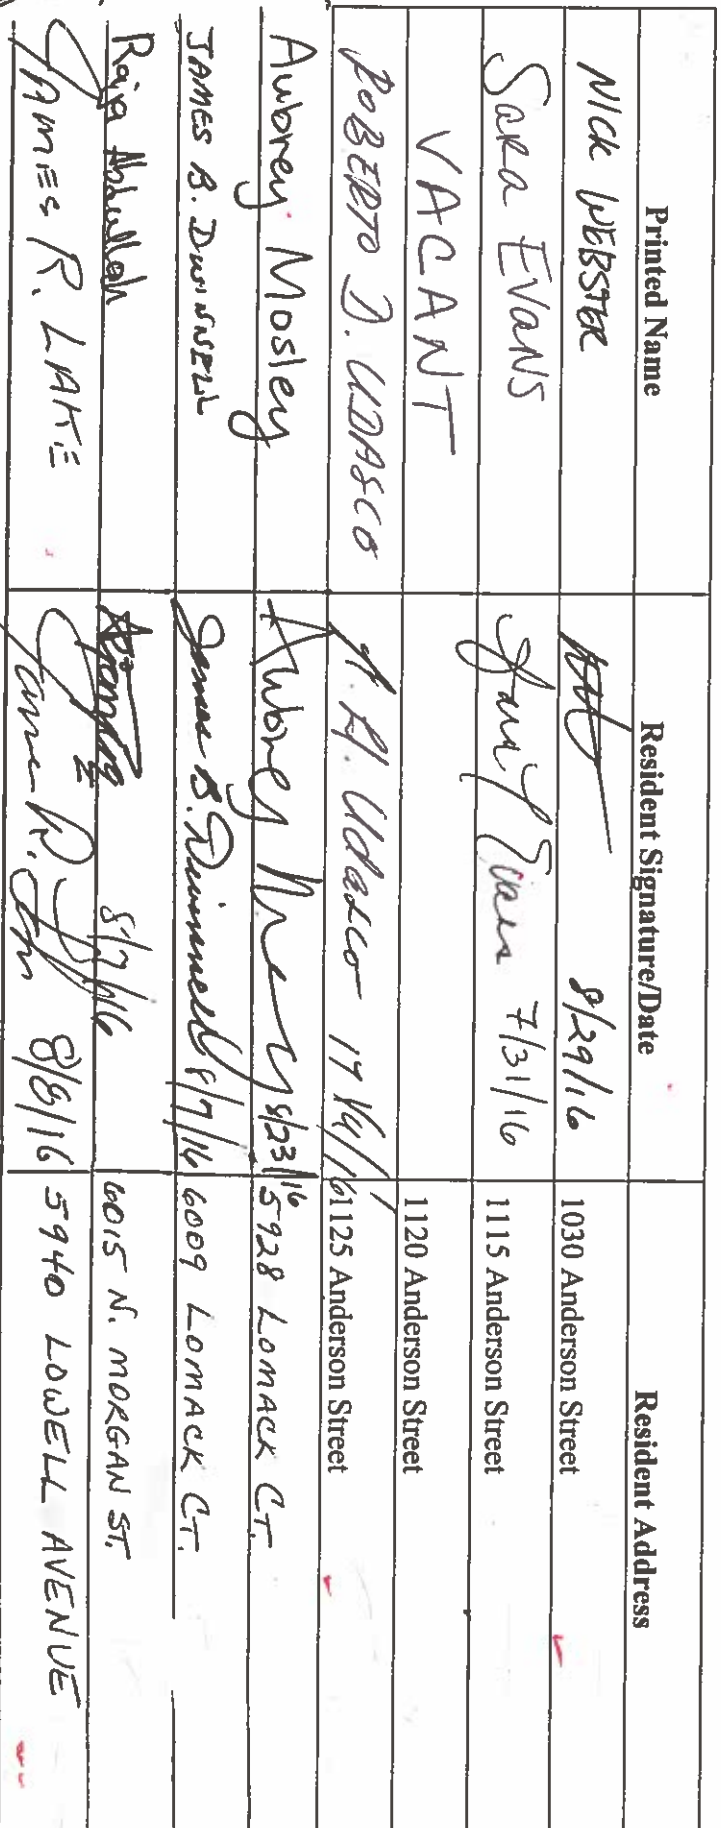 Printed Name Resident Signature/Date Resident Address
NICK WEBSTER 8/29/16 1030 Anderson Street
SaRa EVaNS 7/31/16 1115 Anderson Street
VACANT 1120 Anderson Street
ROBERTO D. UDASCO Udasco 1125 Anderson Street
Aubrey Mosley Aubrey 8/23/16 5928 LOMACK CT.
JAMES B. DWINNELL James B. Dwinnell 8/7/16 6009 LOMACK CT.
Raja Abdullah 8/7/16 6015 N. MORGAN ST.
JAMES R. LAKE James R. 8/8/16 5940 LOWELL AVENUE